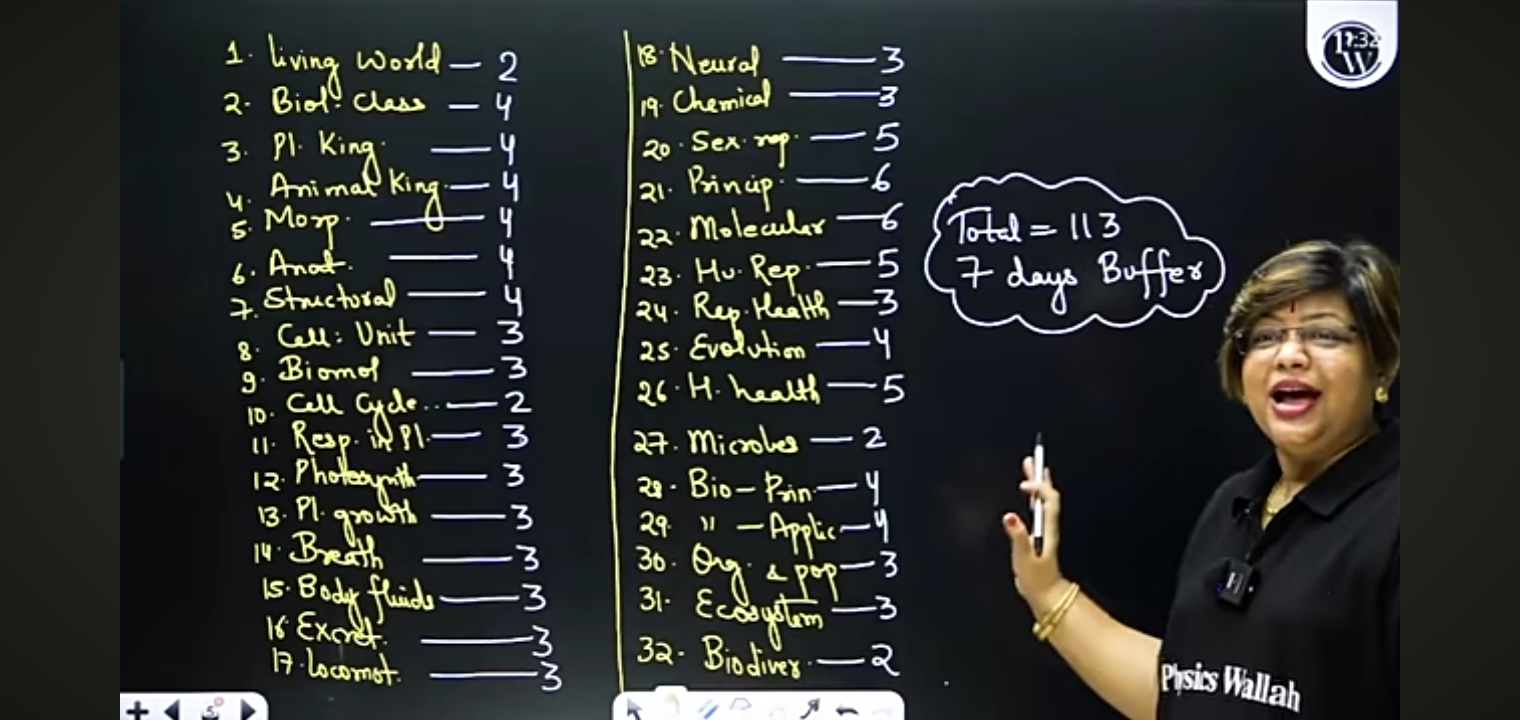 1. living world — 2
2. Biol. Class — 4
3. Pl. King. — 4
4. Animal King. — 4
5. Morp. — 4
6. Anat. — 4
7. Structural — 4
8. Cell: Unit — 3
9. Biomol — 3
10. Cell Cycle.. — 2
11. Resp. in Pl. — 3
12. Photosynth — 3
13. Pl. growth — 3
14. Breath — 3
15. Body fluids — 3
16 Excret. — 3
17. locomot. — 3
18. Neural — 3
19. Chemical — 3
20. Sex. rep. — 5
21. Princip. — 6
22. Molecular — 6
23. Hu. Rep. — 5
24. Rep. Health — 3
25. Evolution — 4
26. H. health — 5
27. Microbes — 2
28. Bio – Prin. — 4
29. " – Applic — 4
30. Org. & pop — 3
31. Ecosystem — 3
32. Biodiver. — 2
Total = 113
7 days Buffer
PW
Physics Wallah
H